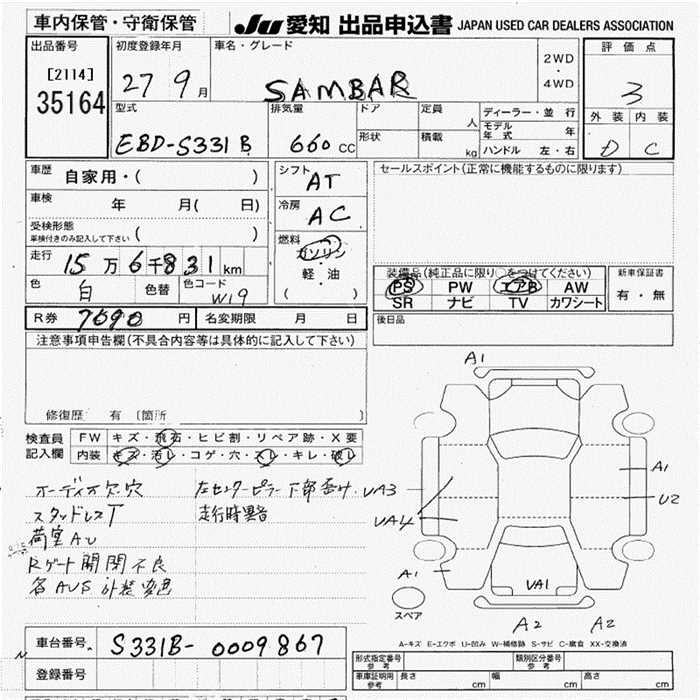 車内保管・守衛保管
JU 愛知 出品申込書 JAPAN USED CAR DEALERS ASSOCIATION
出品番号
[2114]
35164
初度登録年月
27 9月
車名・グレード
SAMBAR
2WD
・
4WD
評価点
3
外装 内装
D C
型式
EBD-S331B
排気量
660cc
ドア
形状
定員
人
積載
kg
ディーラー・並行
モデル年式 年
ハンドル 左・右
車歴 自家用・( )
車検 年 月( 日)
受検形態
車検付きのみ記入して下さい ( )
走行 15万6千831km
色 白 色替 色コード W19
シフト
AT
冷房
AC
燃料
ガソリン
軽・油
( )
セールスポイント(正常に機能するものに限ります)
装備品(純正品に限り○をつけてください)
PS PW エアB AW
SR ナビ TV カワシート
新車保証書
有・無
R券 7690円 名変期限 月 日
後日品
注意事項申告欄(不具合内容等は具体的に記入して下さい)
修復歴 有 〔箇所
検査員記入欄
FW キズ・飛石・ヒビ割・リペア跡・X要
内装 キズ・汚レ・コゲ・穴・スレ・キレ・破レ
オーディオ欠・穴
スタッドレスT
荷室AU
Rゲート開閉不良
各AUS 外装変色
左センターピラー下部歪ケ
走行時異音
A1
UA3
UA4
A1
U2
A1
UA1
A2
A2
スペア
A-キズ E-エクボ U-凹み W-補修跡 S-サビ C-腐食 XX-交換済
車台番号 S331B-0009867
登録番号
形式指定番号
参考
類別区分番号
参考
車庫証明用
参考
長さ cm 幅 cm 高さ cm